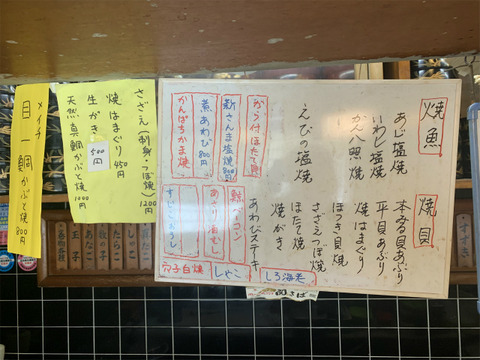 焼魚
あじ塩焼
いわし塩焼
かんぱち照焼
えびの塩焼
焼貝
本みる貝あぶり
平貝あぶり
焼はまぐり
ほっき貝焼
さざえつぼ焼
ほたて焼
焼がき
あわびステーキ
から付ほたて焼
新さんま塩焼 800円
煮あわび 800円
かんぱちかま焼
鯨ベーコン
あさり酒むし
すじこおろし
しろ海老
しゃこ
穴子白焼
さざえ(刺身・つぼ焼) 1200円
焼はまぐり 450円
生がき 500円
天然真鯛かぶと焼 1000円
メイチ
目一鯛かぶと焼 800円
数の子
たらこ
あなご
玉子